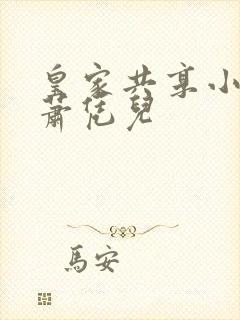 皇家共享小
蕭恁兒
馬安